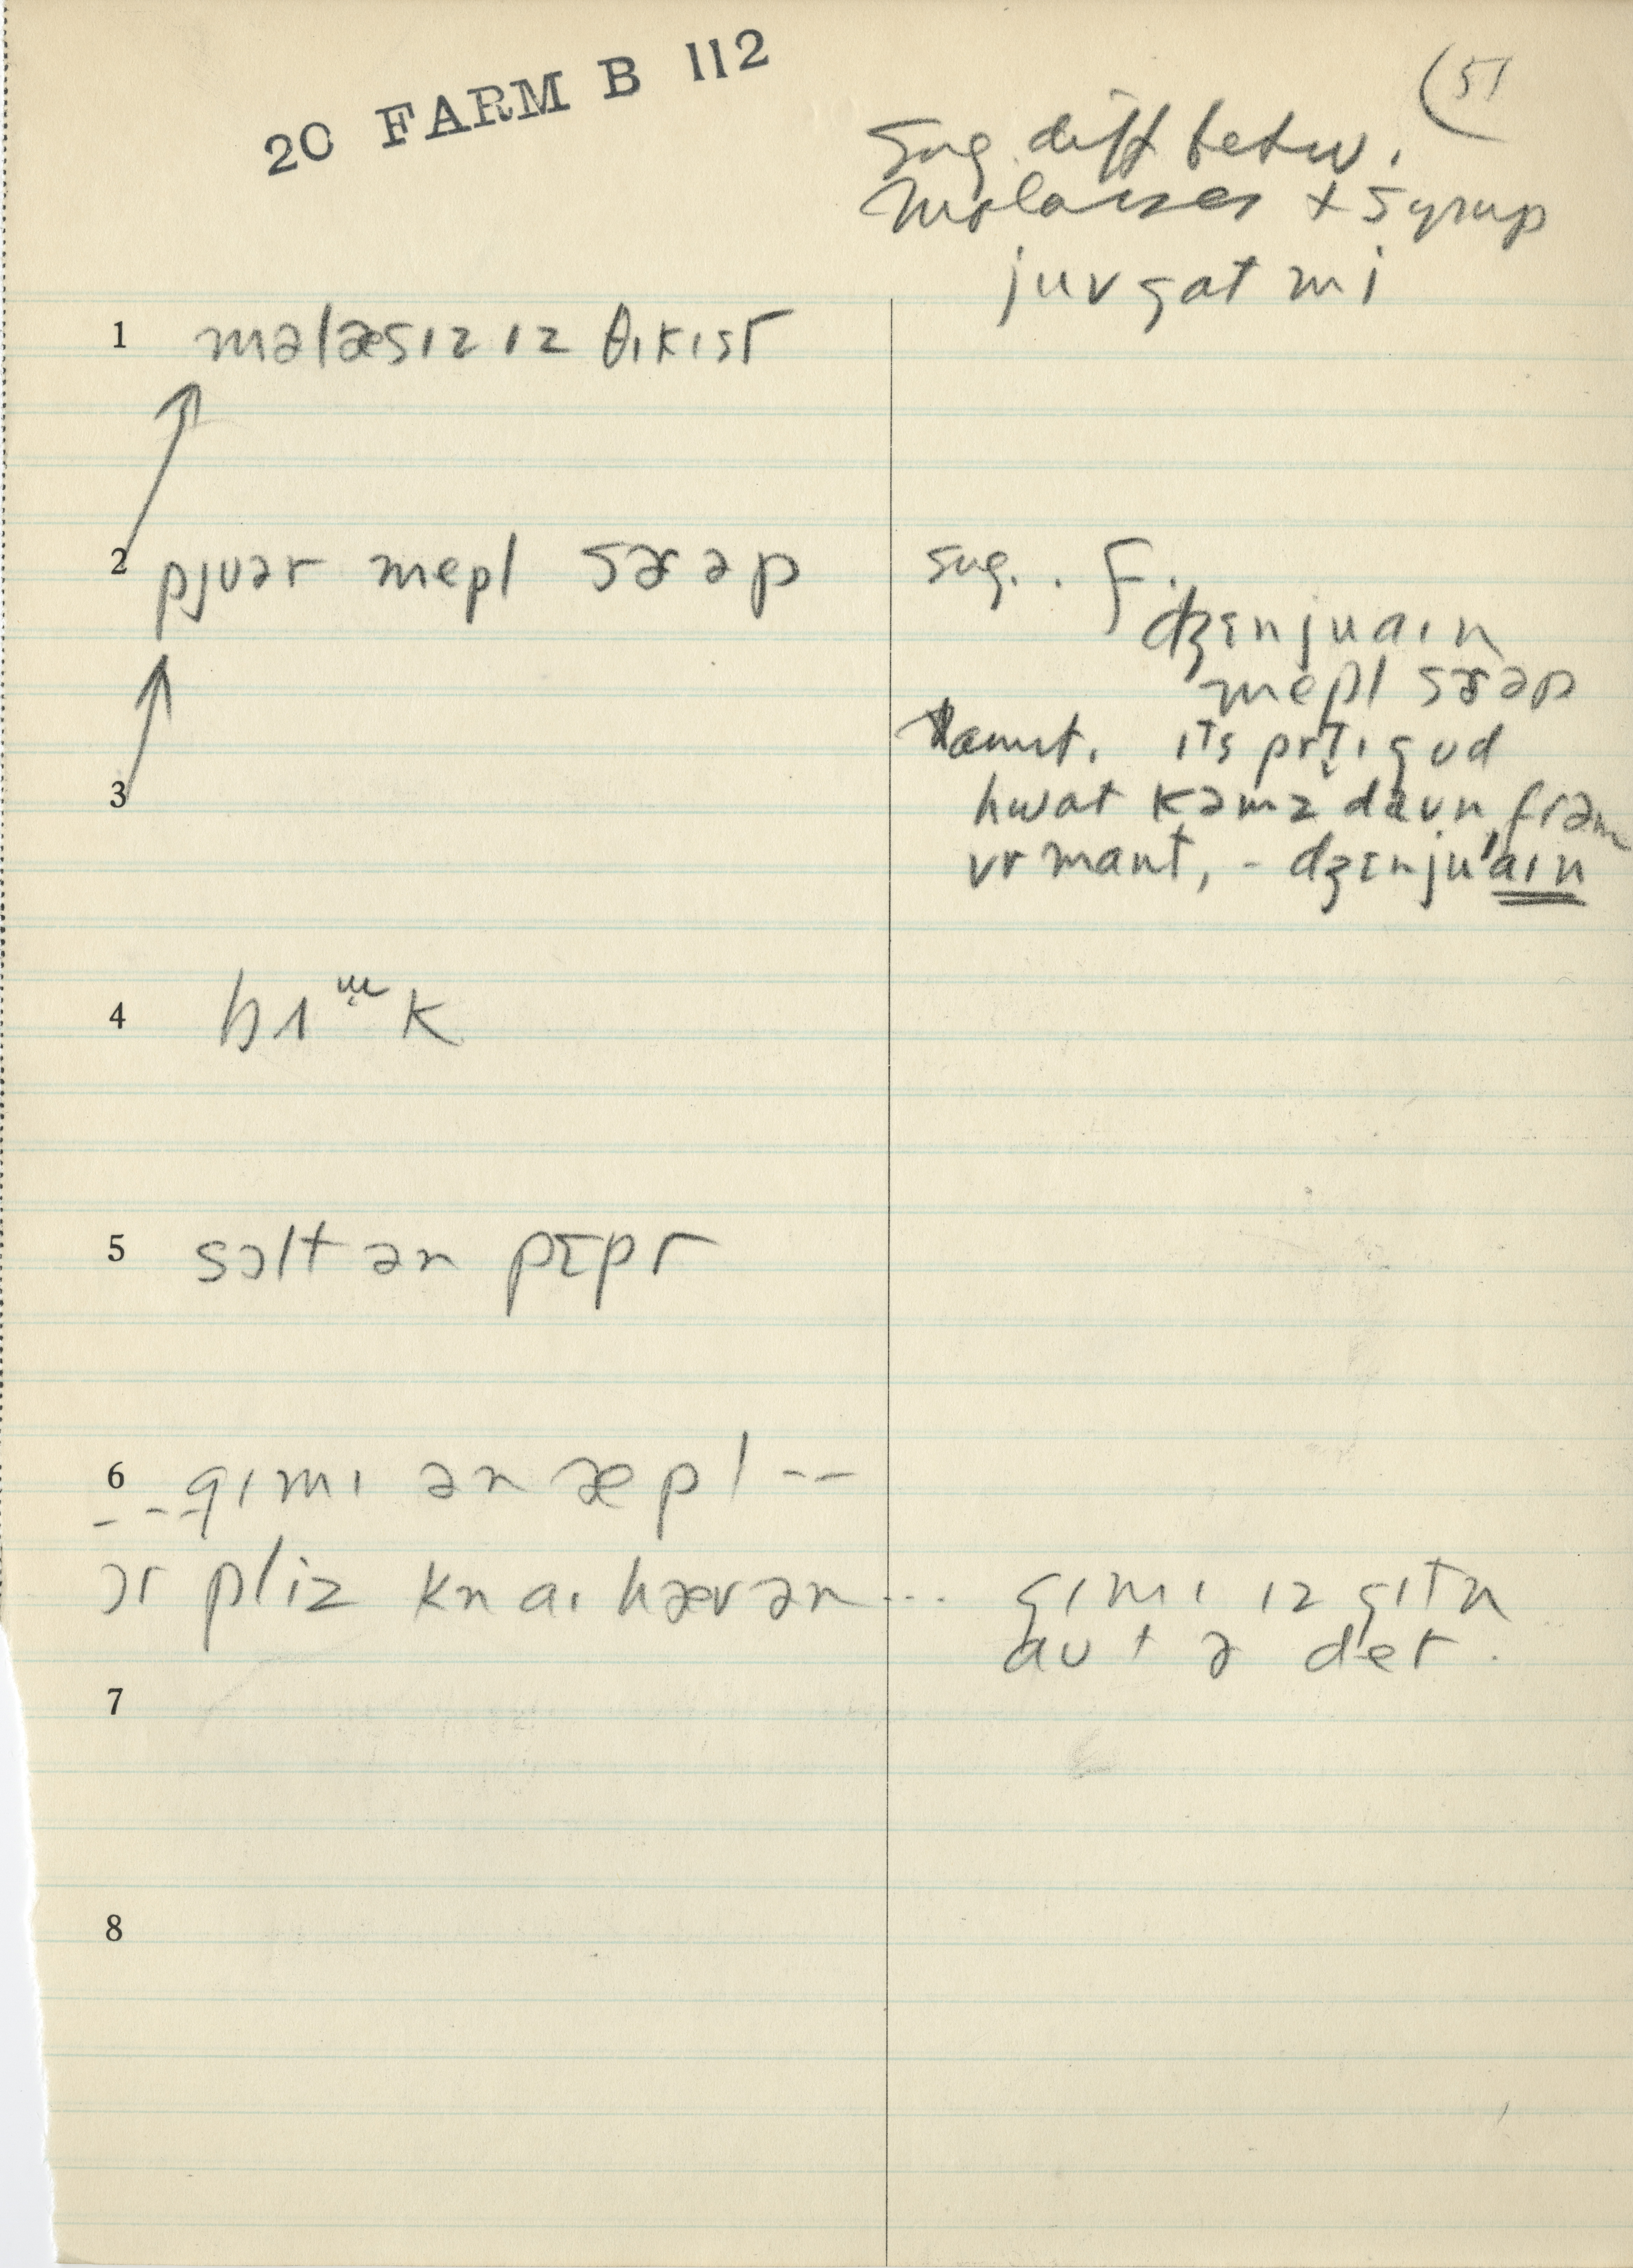 20 FARM B 112
(51
sug. diff betw.
Molasses + Syrup
juv gat mi
1 məlæsɪz ɪz θɪkɪst
2 pjuər mepl sɚəp
sug. . F.
dʒɛnjuaɪn
mepl sɚəp
3
ɪts prt̬ɪ gʊd
hwat kəmz daʊn frəm
vr mant, - dʒɛnju'aɪn
4
5 sɔlt ən pɛpr
6 --gɪmɪ ən æpl --
ɔr pliz kn aɪ hæv ən ...
gɪmɪ ɪz gɪtn
aʊt ə det.
7
8